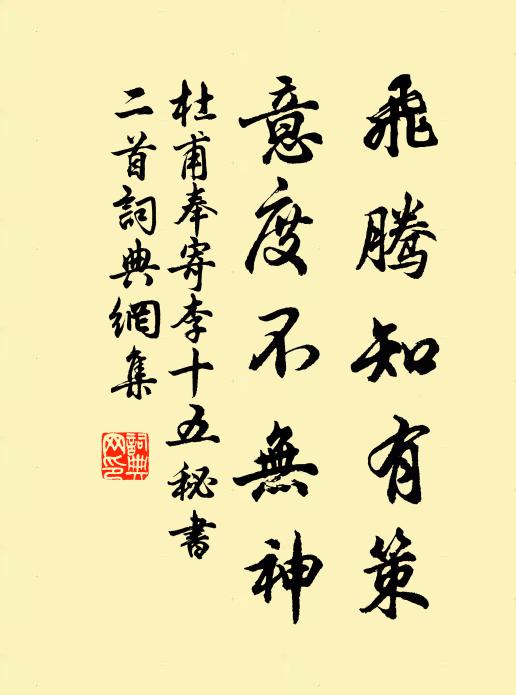 飛騰知有策
意度不無神
杜甫奉寄李十五秘書
二首詞典網集
詞典
网印